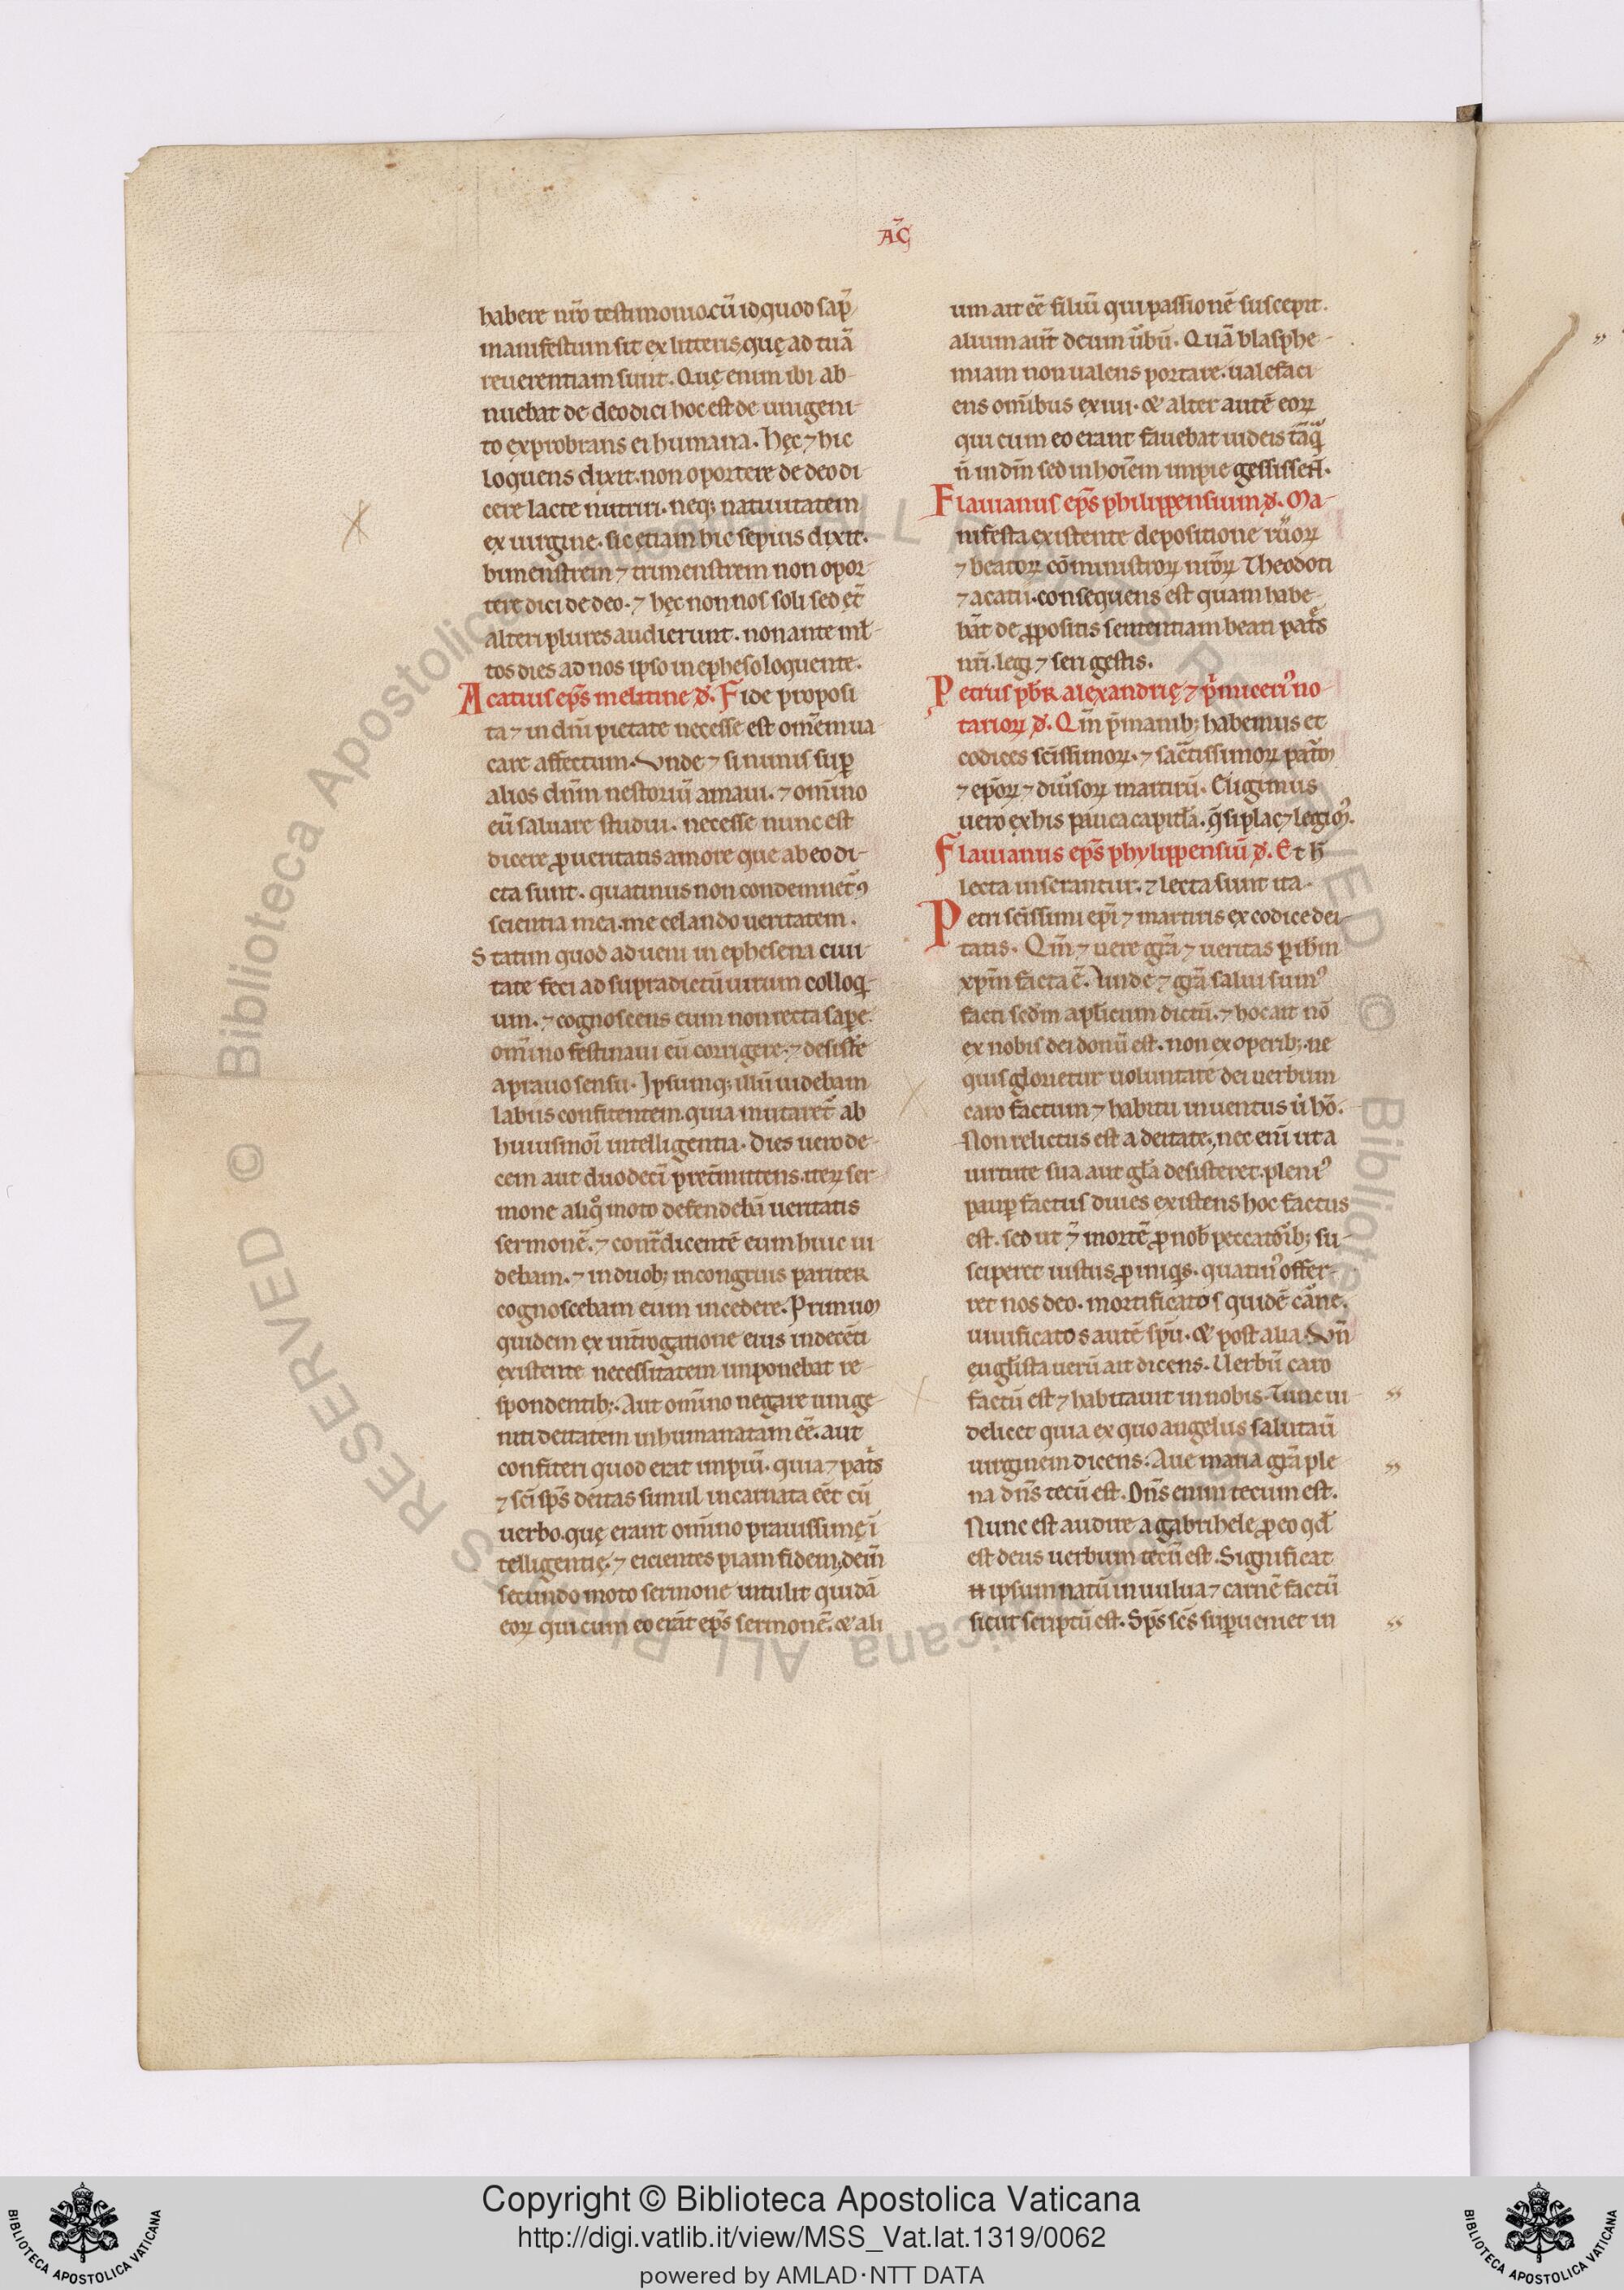 AC̃
habere nr̃o testimonio. cũ id quod sap̃
manifestum sit ex litteris, quę ad tuã
reuerentiam sunt. Quę enim ibi ab-
nuebat de deo dici hoc est de unigeni-
to exprobrans ei humana. Hęc ⁊ hic
loquens dixit. non oportere de deo di
cere lacte nutriri. neq; natiuitatem
ex uirgine. sic etiam hic sepius dixit.
bimenstrem ⁊ trimenstrem non opor-
tere dici de deo. ⁊ hęc non nos soli sed et̃
alteri plures audierunt. non ante ml̃-
tos dies ad nos ipso in epheso loquente.
Acatius ep̃s melitine đ. Fide proposi
ta ⁊ in dn̄i pietate necesse est om̃em ua-
care affectum. Vnde ⁊ si nimis suꝑ
alios dn̄m nestoriũ amaui. ⁊ om̃ino
eũ saluare studui. necesse nunc est
dicere ꝓ ueritatis amore que ab eo di-
cta sunt. quatinus non condemnet᷑
scientia mea. me celando ueritatem.
Statim quod adueni in ephesena ciui-
tate feci ad supradictũ uirum colloq̃-
um. ⁊ cognoscens eum non recta saꝑe.
om̃ino festinaui eũ corrigere. ⁊ desist̃e
a prauo sensu. Ipsumq; illũ uidebam
labiis confitentem. quia mutaret᷑ ab
huiusmoi᷑ intelligentia. Dies uero de-
cem aut duodecĩ pret̃mittens. iteꝝ ser-
mone aliqͦ moto defendebã ueritatis
sermonẽ. ⁊ cont̃dicentẽ eum huic ui-
debam. ⁊ in duob; incongruis pariter
cognoscebam eum incedere. Primuꝫ
quidem ex int̃rogatione eius indecẽti
existente necessitatem imponebat re-
spondentib;. Aut om̃ino negare unige-
niti deitatem inhumanatam eẽ. aut
confiteri quod erat impiũ. quia ⁊ pat̃s
⁊ sc̃i sp̃s deitas simul incarnata eẽt cũ
uerbo. quę erant om̃ino prauissimę ĩ
telligentię. ⁊ eicientes piam fidem. dein̄
secundo moto sermone intulit quidã
eoꝝ qui cum eo erãt ep̃s sermonẽ. & ali
um ait eẽ filiũ qui passionẽ suscepit.
alium aut̃ deum ũbũ. Quã blasphe-
miam non ualens portare. ualefaci
ens om̃ibus exiui. & alter autẽ eoꝝ
qui cum eo erant fauebat iudeis tãq̃
ñ in dm̃ sed in hoĩem impie gessissent̃.
Flauianus ep̃s philippensium đ. Ma-
nifesta existente depositione rũoꝝ
⁊ beatoꝝ cõministroꝝ nr̃oꝝ Theodoti
⁊ acatii. consequens est quam habe-
bãt de ꝓpositis sententiam beati pat̃s
nr̃i. legi ⁊ seri gestis.
Petrus pb̃r alexandrię ⁊ p̃miceri᷒ no-
tarioꝝ đ. Qm̃ p̃ manib; habemus et
codices sc̃issimoꝝ. ⁊ sac̃tissimoꝝ pat̃ꝫ
⁊ ep̃oꝝ ⁊ diũsoꝝ martirũ. Eligimus
uero ex his pauca capitl̃a. q̃ si placꝫ legim᷒.
Flauianus ep̃s phylippensiũ đ. Et h̃
lecta inserantur. ⁊ lecta sunt ita.
Petri sc̃issimi ep̃i ⁊ martiris ex codice dei-
tatis. Qm̃ ⁊ uere gr̃a ⁊ ueritas ꝑ ih̃m
xp̃m facta ẽ. unde ⁊ gr̃a salui sum᷒
facti scd̃m apl̃icum dictũ. ⁊ hoc ait nõ
ex nobis dei donũ est. non ex operib;. ne
quis glorietur uoluntate dei uerbum
caro factum ⁊ habitu inuentus ut̃ hõ.
Non relictus est a deitate, nec eni᷑ ut a
uirtute sua aut gl̃a desisteret. pleni᷒
pauꝑ factus diues existens hoc factus
est. sed ut ⁊̃ mortẽ ꝓ nob̃ peccatõib; su-
sciperet iustus ꝓ iniq̃s. quatin᷒ offer-
ret nos deo. mortificatos quidẽ cãne.
uiuificatos autẽ sp̃u. & post alia. Vñ
eugl̃ista uerũ ait dicens. Uerbũ caro
factũ est ⁊ habitauit in nobis. Tunc ui-
delicet quia ex quo angelus salutaũ
uirginem dicens. Aue maria gr̃a ple-
na dñs tecũ est. Dñs enim tecum est.
Nunc est audire a gabrihele ꝓ eo qđ
est deus uerbum tecũ est. Significat
ipsum natũ in uulua ⁊ carnẽ factũ
sicut scriptũ est. Sp̃s sc̃s suꝑueniet in
© Biblioteca Apostolica Vaticana ALL RIGHTS RESERVED
Copyright © Biblioteca Apostolica Vaticana
http://digi.vatlib.it/view/MSS_Vat.lat.1319/0062
powered by AMLAD·NTT DATA
BIBLIOTECA APOSTOLICA VATICANA
BIBLIOTECA APOSTOLICA VATICANA